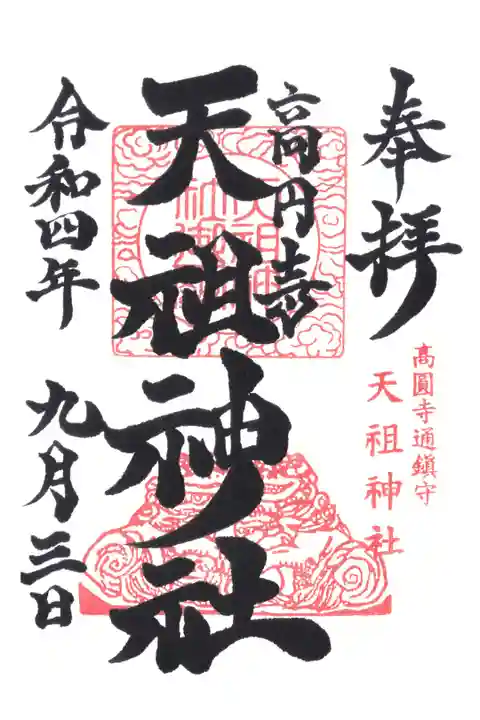 奉拝
高圓寺通鎮守
天祖神社
高円寺
天祖神社
令和四年
九月三日